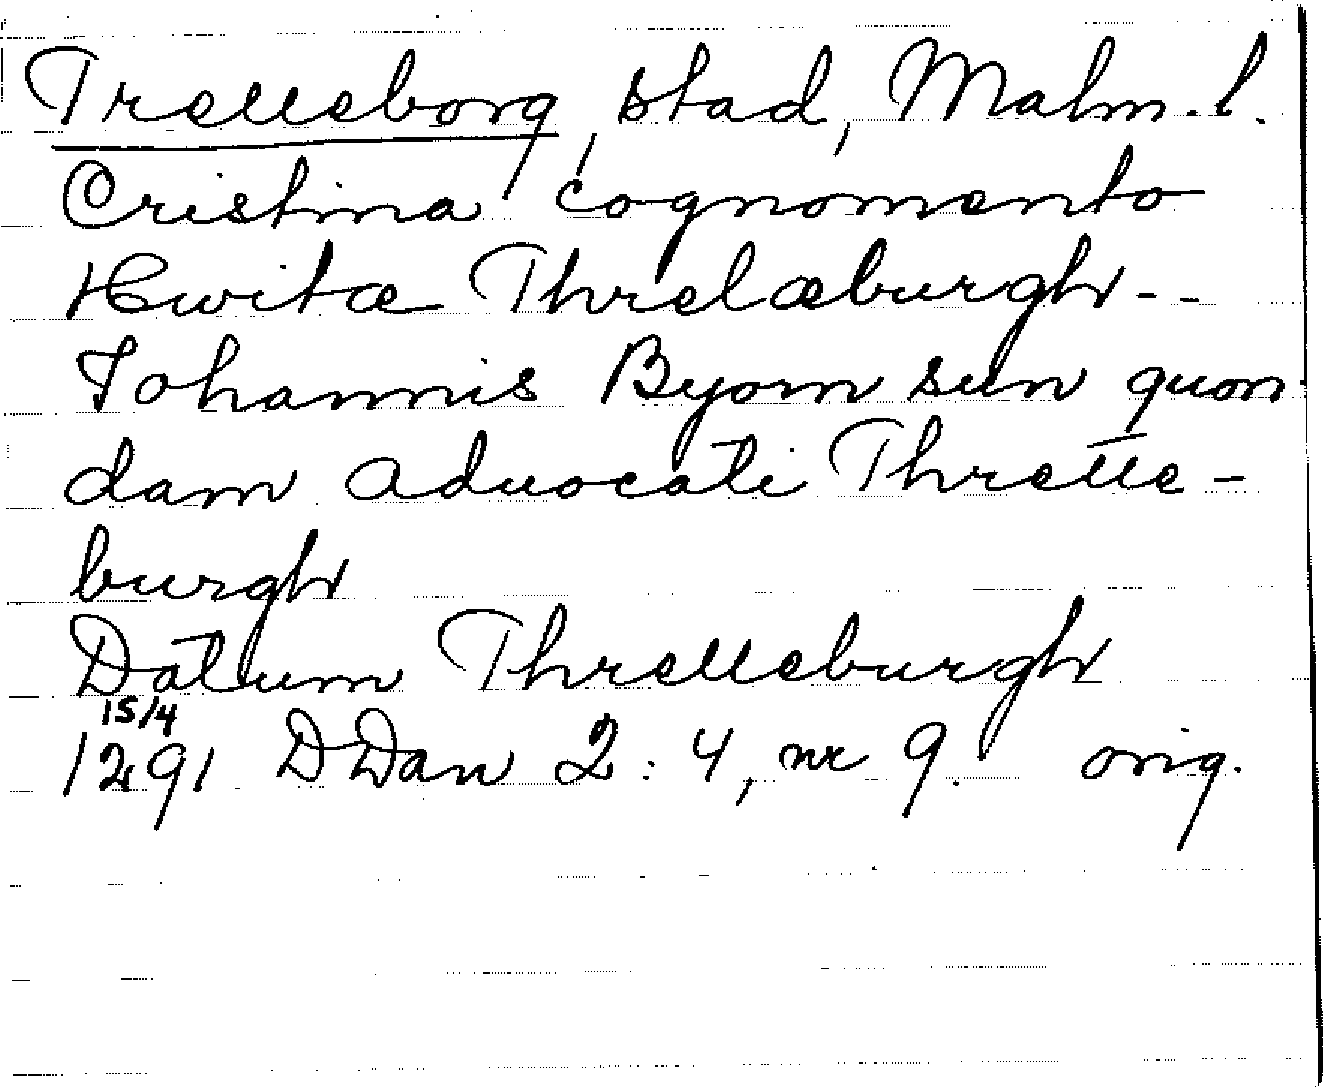 Trelleborg, stad, Malm. l.
Cristina cognomento
Hwitæ Threlæburgh - -
Iohannis Byorn sun quon-
dam aduocati Threlle-
burgh
Datum Threlleburgh
15/4
1291 DDan 2:4, nr 9. orig.